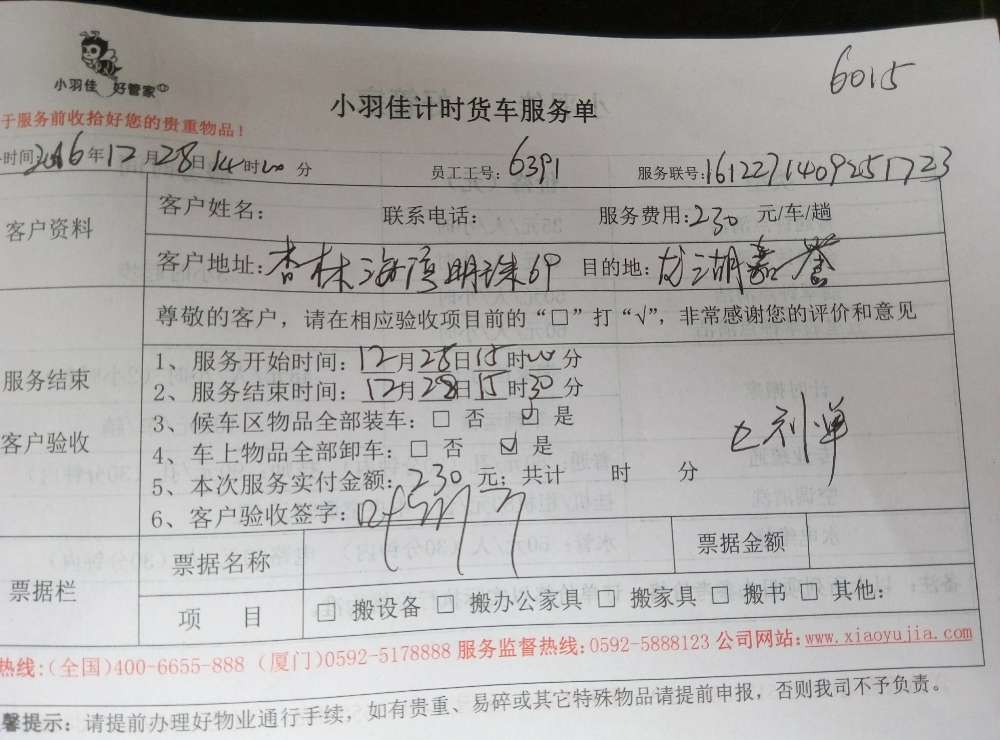 小羽佳 好管家
6015
小羽佳计时货车服务单
于服务前收拾好您的贵重物品！
时间:2016年12月28日14时00分 员工工号:6391 服务联号:161227140925 1723
客户资料
客户姓名: 联系电话: 服务费用:230 元/车/趟
客户地址:杏林海湾明珠69 目的地:龙湖嘉誉
尊敬的客户，请在相应验收项目前的“□”打“√”，非常感谢您的评价和意见
服务结束
客户验收
1、服务开始时间:12月28日15时00分
2、服务结束时间:12月28日15时30分
3、候车区物品全部装车:□ 否 ☑ 是
4、车上物品全部卸车:□ 否 ☑ 是
5、本次服务实付金额:230 元；共计 时 分
6、客户验收签字:
票据栏
票据名称 票据金额
项 目 □ 搬设备 □ 搬办公家具 □ 搬家具 □ 搬书 □ 其他:
热线:(全国)400-6655-888 (厦门)0592-5178888 服务监督热线:0592-5888123 公司网站:www.xiaoyujia.com
馨提示: 请提前办理好物业通行手续，如有贵重、易碎或其它特殊物品请提前申报，否则我司不予负责。